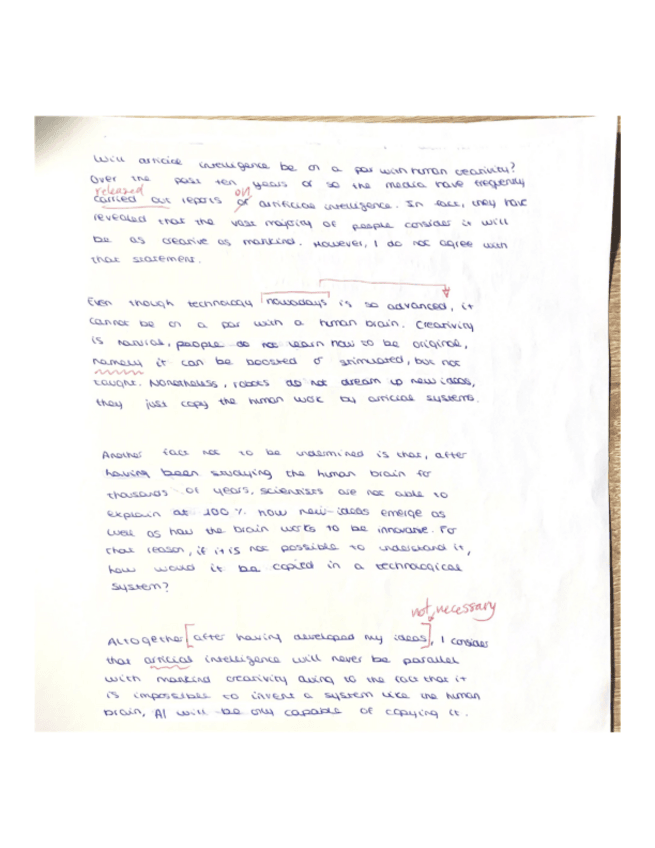 Will articial intelligence be on a par with human creativity?
Over the past ten years or so the media have frequently
released on
carried out reports of artificial intelligence. In fact, they have
revealed that the vast majority of people consider it will
be as creative as mankind. However, I do not agree with
that statement.
Even though technology nowadays is so advanced, it
cannot be on a par with a human brain. Creativity
is natural, people do not learn how to be original,
namely it can be boosted or stimulated, but not
taught. Nonetheless, robots do not dream up new ideas,
they just copy the human work by articial systems.
Another fact not to be undermined is that, after
having been studying the human brain for
thousands of years, scientists are not able to
explain at 100% how new ideas emerge as
well as how the brain works to be innovative. For
that reason, if it is not possible to understand it,
how would it be copied in a technological
system?
not necessary
Altogether after having developed my ideas, I consider
that articial intelligence will never be parallel
with mankind creativity owing to the fact that it
is impossible to invent a system like the human
brain, AI will be only capable of copying it.